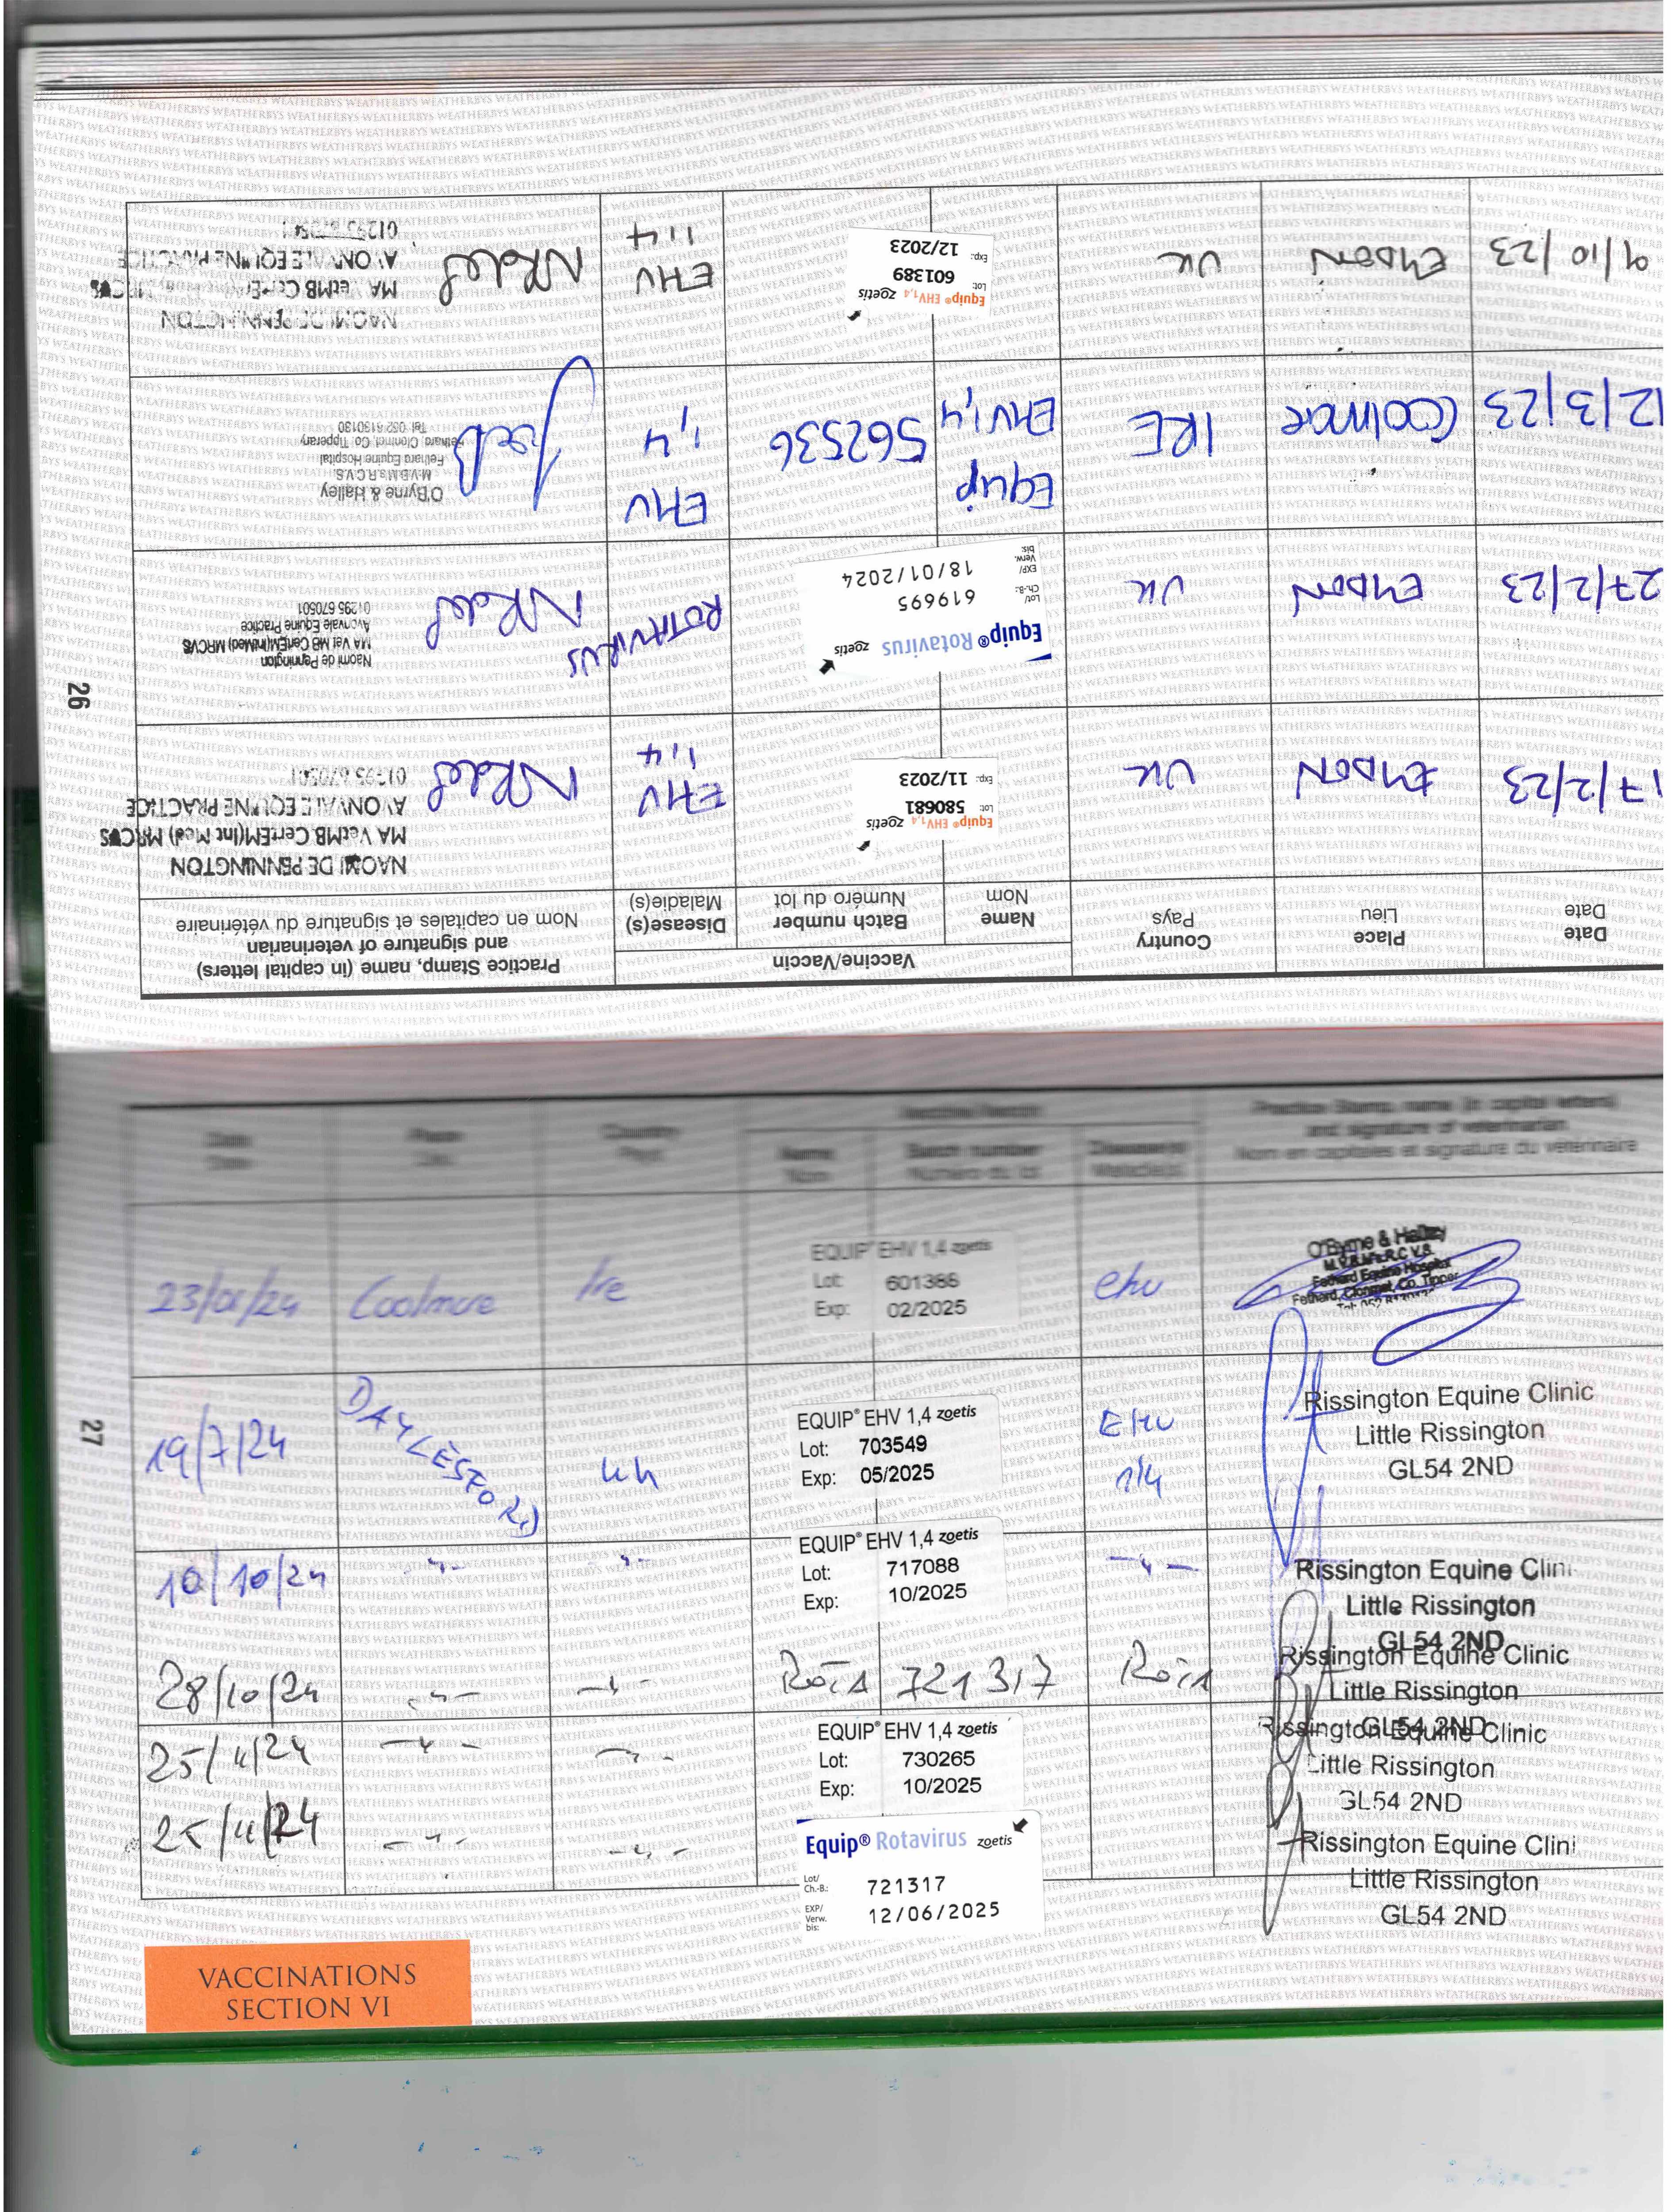 26
Date
Date
Place
Lieu
Country
Pays
Vaccine/Vaccin
Name
Nom
Batch number
Numéro du lot
Disease(s)
Maladie(s)
Practice Stamp, name (in capital letters)
and signature of veterinarian
Nom en capitales et signature du vétérinaire
17/2/23
EYDON
UK
Equip® EHV1,4 zoetis
Lot: 580681
Exp.: 11/2023
EHV
1,4
NAOMI DE PENNINGTON
MA VetMB CertEM(Int Med) MRCVS
AVONVALE EQUINE PRACTICE
01295 670501
27/2/23
EYDON
UK
Equip® Rotavirus zoetis
Lot/
Ch.-B.: 619695
EXP/
Verw.
bis: 18/01/2024
ROTAVIRUS
Naomi de Pennington
MA Vet MB CertEM(IntMed) MRCVS
Avonvale Equine Practice
01295 670501
12/3/23
Coolmore
IRE
Equip
EHV1,4
562536
EHV
1,4
O'Byrne & Halley
M.V.B.M's R.C.V.S.
Fethard Equine Hospital
Fethard Clonmel Co. Tipperary
Tel: 052 6130130
9/10/23
EYDON
UK
Equip® EHV1,4 zoetis
Lot: 601389
Exp.: 12/2023
EHV
1,4
NAOMI DE PENNINGTON
AVONVALE EQUINE PRACTICE
27
Date
Date
Place
Lieu
Country
Pays
Vaccine/Vaccin
Name
Nom
Batch number
Numéro du lot
Disease(s)
Maladie(s)
Practice Stamp, name (in capital letters)
and signature of veterinarian
Nom en capitales et signature du vétérinaire
23/01/24
Coolmore
Ire
EQUIP® EHV 1,4 zoetis
Lot: 601386
Exp: 02/2025
ehv
O'Byrne & Halley
M.V.B.M's R.C.V.S.
Fethard Equine Hospital
Fethard, Clonmel, Co. Tipper
19/7/24
DAYLESFORD
UK
EQUIP® EHV 1,4 zoetis
Lot: 703549
Exp: 05/2025
EHV
1/4
Rissington Equine Clinic
Little Rissington
GL54 2ND
10/10/24
EQUIP® EHV 1,4 zoetis
Lot: 717088
Exp: 10/2025
Rissington Equine Clini
Little Rissington
GL54 2ND
28/10/24
721317
Rissington Equine Clinic
Little Rissington
GL54 2ND
25/11/24
EQUIP® EHV 1,4 zoetis
Lot: 730265
Exp: 10/2025
Rissington Equine Clinic
Little Rissington
GL54 2ND
25/11/24
Equip® Rotavirus zoetis
Lot/
Ch.-B.: 721317
EXP/
Verw.
bis: 12/06/2025
Rissington Equine Clini
Little Rissington
GL54 2ND
VACCINATIONS
SECTION VI